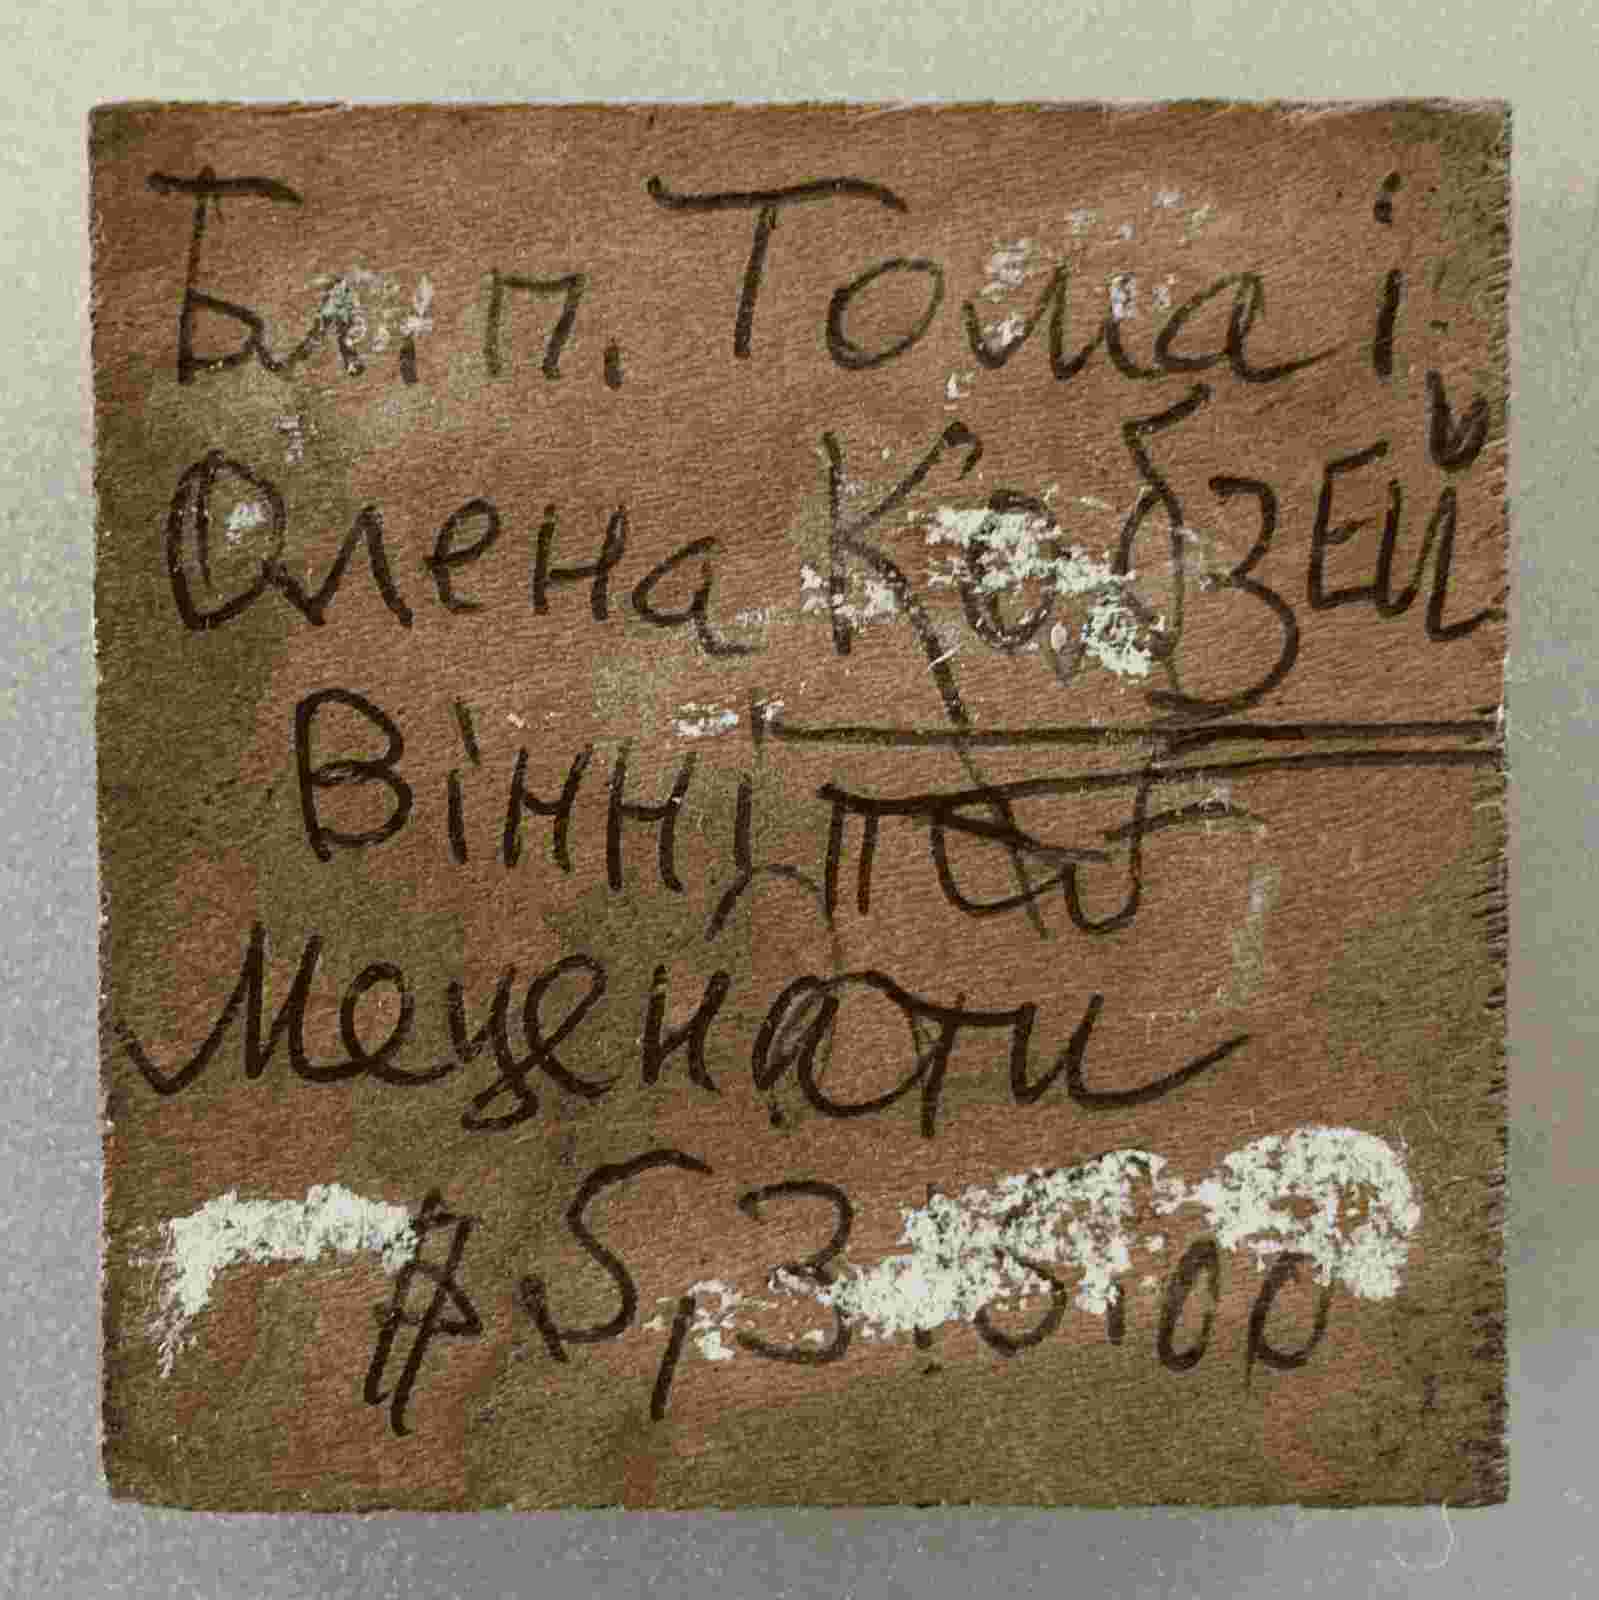 Бл. п. Тома і
Олена Кобзей
Вінніпеґ
Меценати
$ 5,